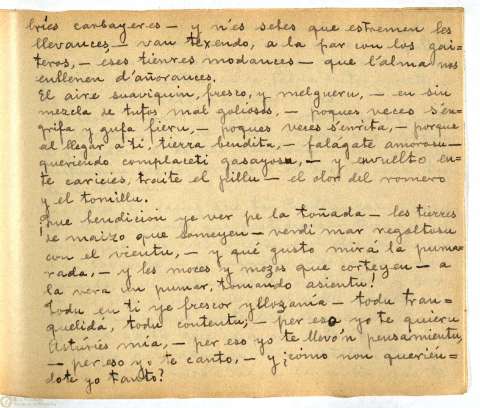 bries carbayeres — y n'es sebes que estremen les
llevances, — van texendo, a la par con los gai-
teros, — eses tienres modances — que l'alma nos
enllenen d'añorances.
El aire suaviquin, fresco, y melgueru, — en sin
mezcla de tufos mal goliosos, — poques veces s'en-
grifa y gufa fieru, — poques veces s'enrita, — porque
al llegar a ti, tierra bendita, — falágate amorosu —
queriendo complaceti gasayosu, — y envuelto en-
te caricies, traite el pillu — el olor del romero
y el tomillu.
¡Que bendición ye ver pe la toñada — les tierres
de maizo que someyen — verdi mar regoltosu
con el vientu, — y qué gusto mirá la puma-
rada, — y les moces y mozos que corteyen — a
la vera un pumar, tomando asientu!
Todu en ti ye frescor y llozanía — todu tran-
quelida, todu contentu; — per eso yo te quieru
Asturies mía, — per eso yo te llevo'n pensamientu,
— per eso yo te canto, — y ¿cómo non querién-
dote yo tanto?